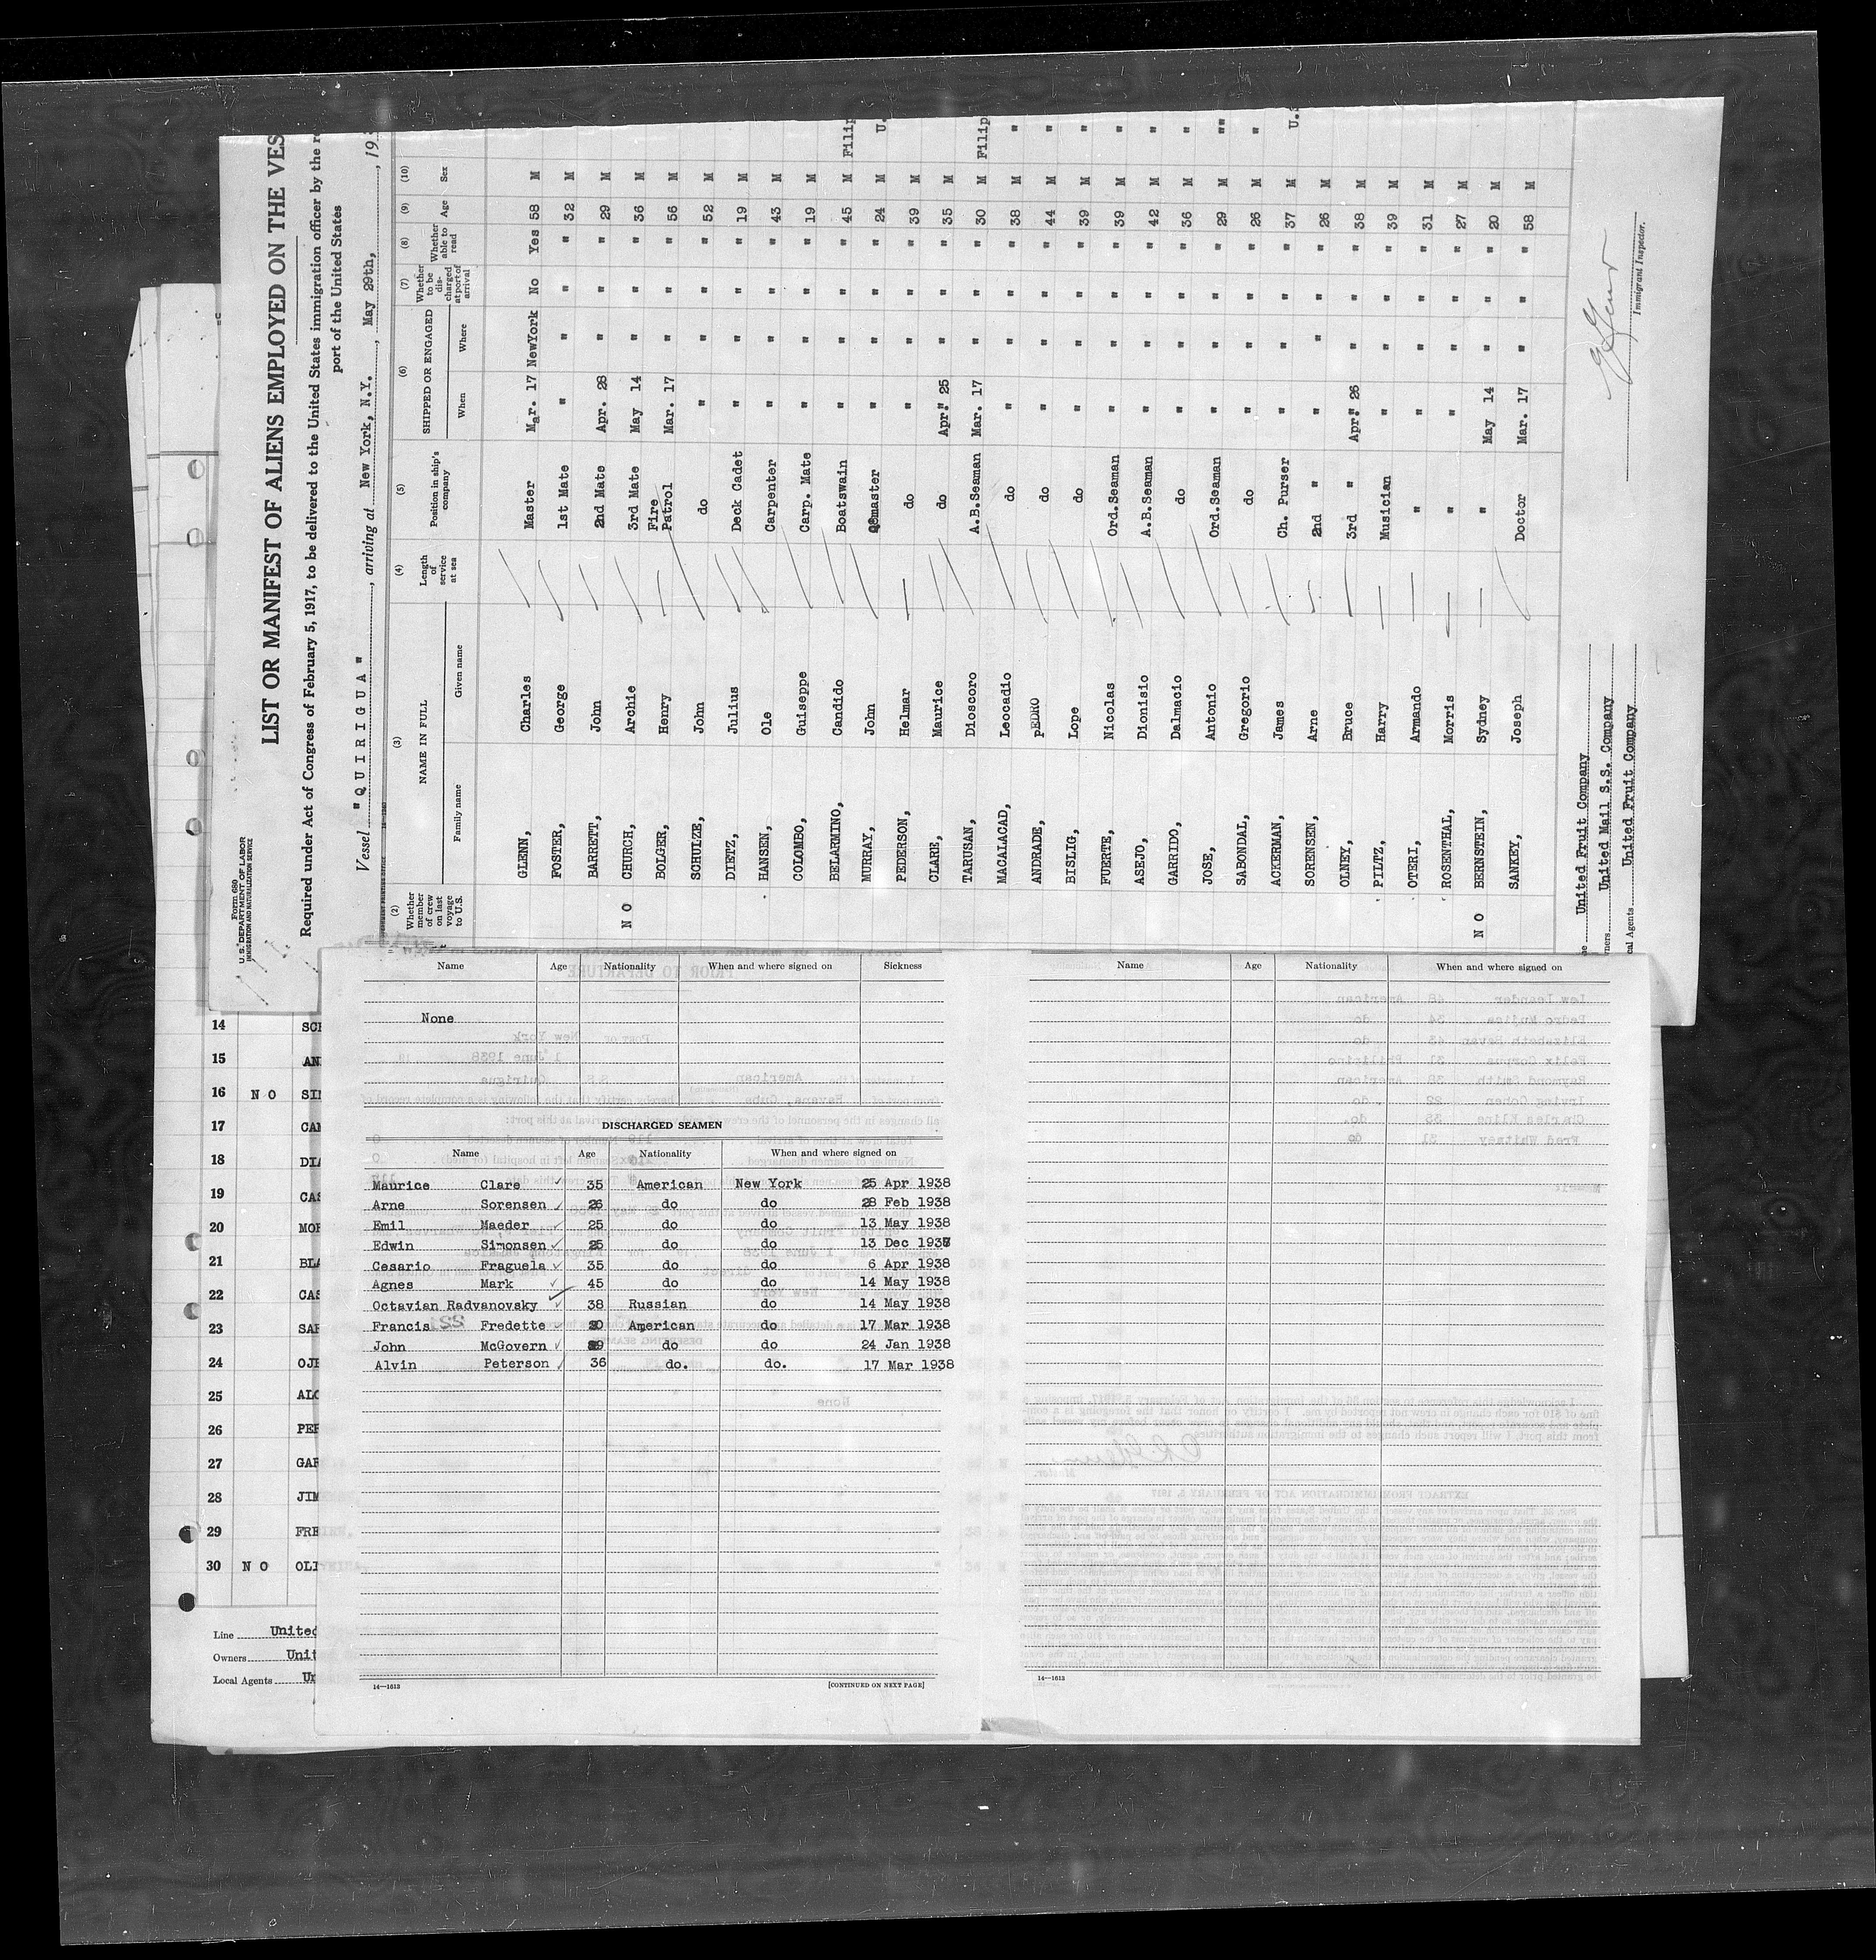 Form 680
U. S. DEPARTMENT OF LABOR
IMMIGRATION AND NATURALIZATION SERVICE
LIST OR MANIFEST OF ALIENS EMPLOYED ON THE VES
Required under Act of Congress of February 5, 1917, to be delivered to the United States immigration officer by the r
port of the United States
Vessel "QUIRIGUA", arriving at New York, N.Y., May 29th, 193
(2) (3) (4) (5) (6) (7) (8) (9) (10)
Whether member of crew on last voyage to U.S. NAME IN FULL Length of service at sea Position in ship's company SHIPPED OR ENGAGED Whether to be discharged at port of arrival Whether able to read Age Sex
Family name Given name When Where
GLENN, Charles Master Mar. 17 NewYork No Yes 58 M
FOSTER, George 1st Mate " " " " 32 M
BARRETT, John 2nd Mate Apr. 28 " " " 29 M
NO CHURCH, Archie 3rd Mate May 14 " " " 36 M
BOLGER, Henry Fire Patrol Mar. 17 " " " 56 M
SCHULZE, John do " " " " 52 M
DIETZ, Julius Deck Cadet " " " " 19 M
HANSEN, Ole Carpenter " " " " 43 M
COLOMBO, Guiseppe Carp. Mate " " " " 19 M
BELARMINO, Candido Boatswain " " " " 45 M Filip
MURRAY, John Qmaster " " " " 24 M U.
PEDERSON, Helmar do " " " " 39 M
CLARE, Maurice do Apr. 25 " " " 35 M
TARUSAN, Dioscoro A.B.Seaman Mar. 17 " " " 30 M Filip
MACALACAD, Leocadio do " " " " 38 M "
ANDRADE, pEDRO do " " " " 44 M "
BISLIG, Lope do " " " " 39 M "
FUERTE, Nicolas Ord.Seaman " " " " 39 M "
ASEJO, Dionisio A.B.Seaman " " " " 42 M "
GARRIDO, Dalmacio do " " " " 36 M "
JOSE, Antonio Ord.Seaman " " " " 29 M ""
SABONDAL, Gregorio do " " " " 26 M "
ACKERMAN, James Ch. Purser " " " " 37 M U.
SORENSEN, Arne 2nd " " " " " 26 M
OLNEY, Bruce 3rd " Apr. 26 " " " 38 M
PILTZ, Harry Musician " " " " 39 M
OTERI, Armando " " " " " 31 M
ROSENTHAL, Morris " " " " " 27 M
NO BERNSTEIN, Sydney " May 14 " " " 20 M
SANKEY, Joseph Doctor Mar. 17 " " " 58 M
United Fruit Company
United Mail S.S. Company
cal Agents United Fruit Company
Immigrant Inspector.
14 SCH
15 AN
16 NO SI
17 CA
18 DI
19 CA
20 MO
21 BL
22 CAS
23 SA
24 OJ
25 AL
26 PE
27 GA
28 JI
29 FR
30 NO OL
Line United
Owners Unit
Local Agents Un
Name Age Nationality When and where signed on Sickness
None
DISCHARGED SEAMEN
Name Age Nationality When and where signed on
Maurice Clare 35 American New York 25 Apr 1938
Arne Sorensen 26 do do 28 Feb 1938
Emil Maeder 25 do do 13 May 1938
Edwin Simonsen 25 do do 13 Dec 1937
Cesario Fraguela 35 do do 6 Apr 1938
Agnes Mark 45 do do 14 May 1938
Octavian Radvanovsky 38 Russian do 14 May 1938
Francis Fredette 20 American do 17 Mar 1938
John McGovern do do 24 Jan 1938
Alvin Peterson 36 do. do. 17 Mar 1938
14—1613
[CONTINUED ON NEXT PAGE]
Name Age Nationality When and where signed on
14—1613